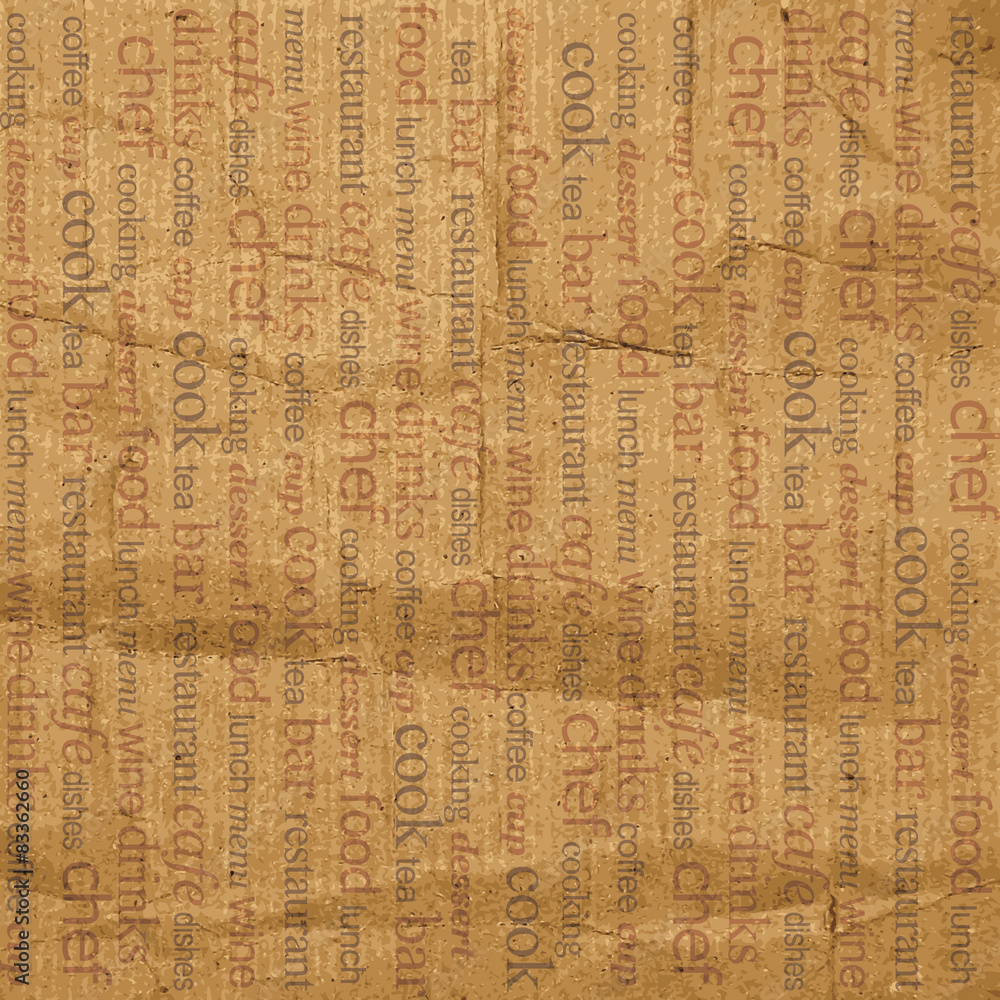 restaurant cafe dishes chef cooking dessert food lunch
menu wine drinks coffee cup cook tea bar restaurant
cafe dishes chef cooking dessert food lunch menu wine
drinks coffee cup cook tea bar restaurant cafe dishes
chef cooking dessert food lunch menu wine drinks
coffee cup cook tea bar restaurant cafe dishes chef
cooking dessert food lunch menu wine drinks coffee cup
cook tea bar restaurant cafe dishes chef cooking
dessert food lunch menu wine drinks coffee cup cook
tea bar restaurant cafe dishes chef cooking dessert
food lunch menu wine drinks coffee cup cook tea bar
restaurant cafe dishes chef cooking dessert food lunch
menu wine drinks coffee cup cook tea bar restaurant
cafe dishes chef cooking dessert food lunch menu wine
drinks coffee cup cook tea bar restaurant cafe dishes
chef cooking dessert food lunch menu wine drinks
coffee cup cook tea bar restaurant cafe dishes chef
cooking dessert food lunch menu wine drinks
Adobe Stock | #83362660